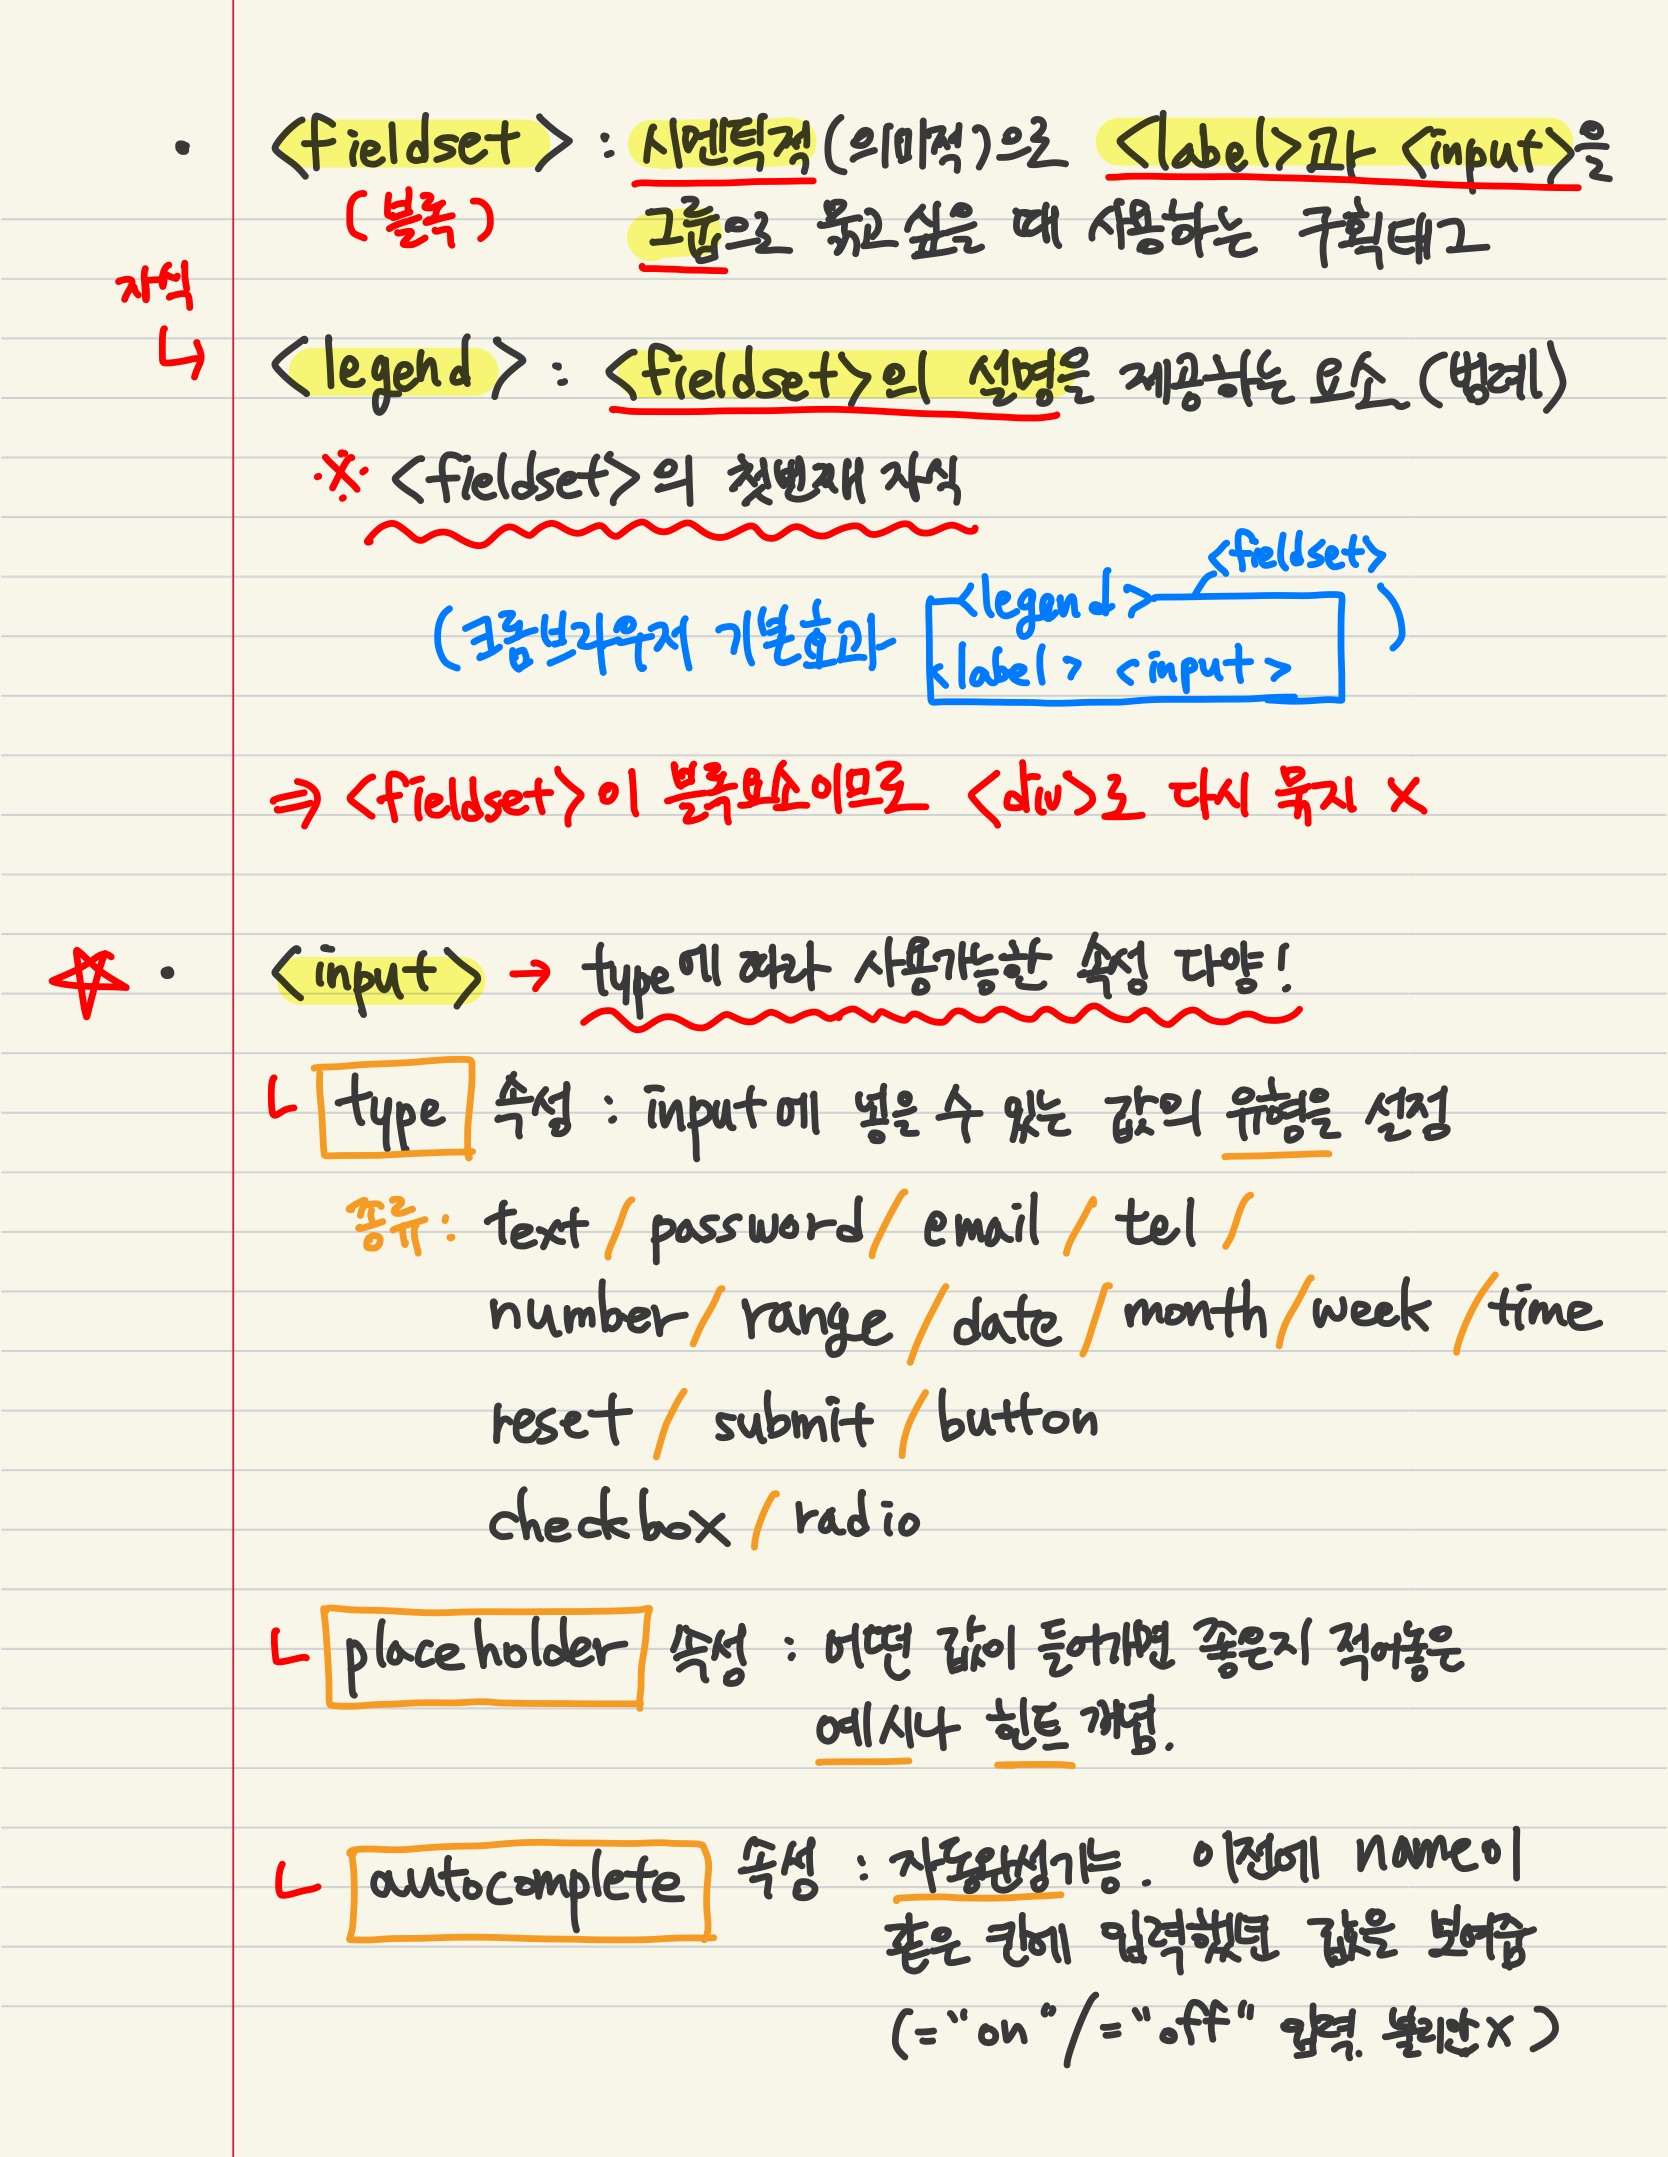 • <fieldset> :시멘틱적(의미적)으로 <label>과 <input>을
(블록) 그룹으로 묶고 싶을 때 사용하는 구획태그
자식
↳ <legend> : <fieldset>의 설명을 제공하는 요소 (범례)
※ <fieldset>의 첫번째 자식
<fieldset>
(크롬브라우저 기본효과 <legend> )
<label> <input>
⇒ <fieldset>이 블록요소이므로 <div>로 다시 묶지 X
☆ • <input> → type에 따라 사용가능한 속성 다양!
ㄴ type 속성 : input에 넣을 수 있는 값의 유형을 설정
종류: text / password / email / tel /
number / range / date / month / week / time
reset / submit / button
checkbox / radio
ㄴ placeholder 속성 : 어떤 값이 들어가면 좋은지 적어놓은
예시나 힌트 개념.
ㄴ autocomplete 속성 : 자동완성기능. 이전에 name이
같은 칸에 입력했던 값을 보여줌
(="on"/="off" 입력. 불리안X)